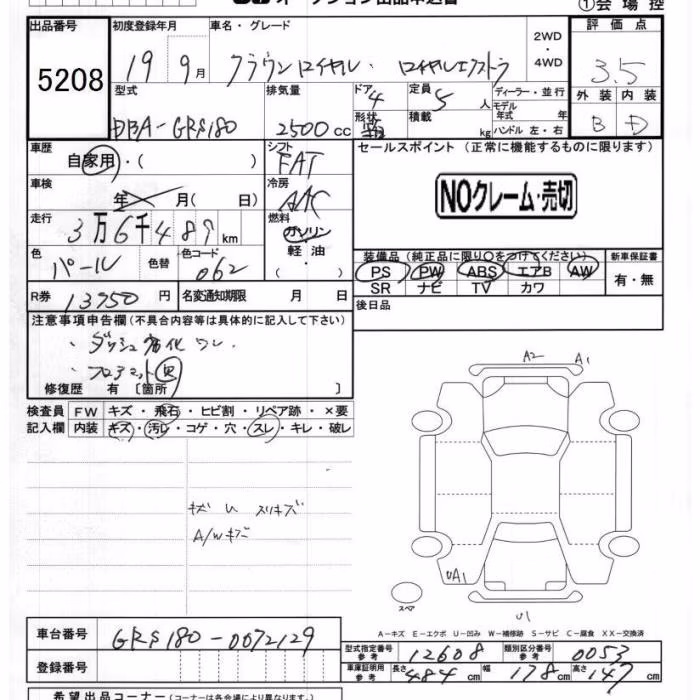 オークション出品申込書
①会場控
出品番号 初度登録年月 車名・グレード 2WD・4WD 評価点
5208 19 9月 クラウンロイヤル・ロイヤルエクストラ 3.5
型式 排気量 ドア 4 定員 5人 ディーラー・並行 外装 内装
DBA-GRS180 2500cc 形状 積載 kg モデル年式 年 B D
ハンドル 左・右
車歴 シフト セールスポイント (正常に機能するものに限ります)
自家用・( ) FAT
車検 年 月( 日) 冷房 AAC NOクレーム・売切
走行 3万6千489km 燃料 ガソリン
軽油・( )
色 パール 色替 色コード 062 装備品(純正品に限り○をつけてください) 新車保証書
PS PW ABS エアB AW 有・無
SR ナビ TV カワ
R券 13950円 名変通知期限 月 日 後日品
注意事項申告欄(不具合内容等は具体的に記入して下さい)
・ダッシュ劣化ワレ
・フロアマット
修復歴 有 [箇所 ]
A2 A1
検査員 FW キズ・飛石・ヒビ割・リペア跡・×要
記入欄 内装 キズ・汚レ・コゲ・穴・スレ・キレ・破レ
キズ U スリキズ
A/Wキズ
UA1
スペア
U1
A-キズ E-エクボ U-凹み W-補修跡 S-サビ C-腐食 XX-交換済
車台番号 GRS180-0072129 型式指定番号 参考 12608 類別区分番号 参考 0053
登録番号 車庫証明用 参考 長さ 484cm 幅 178cm 高さ 147cm
希望出品コーナー(コーナーは各会場により